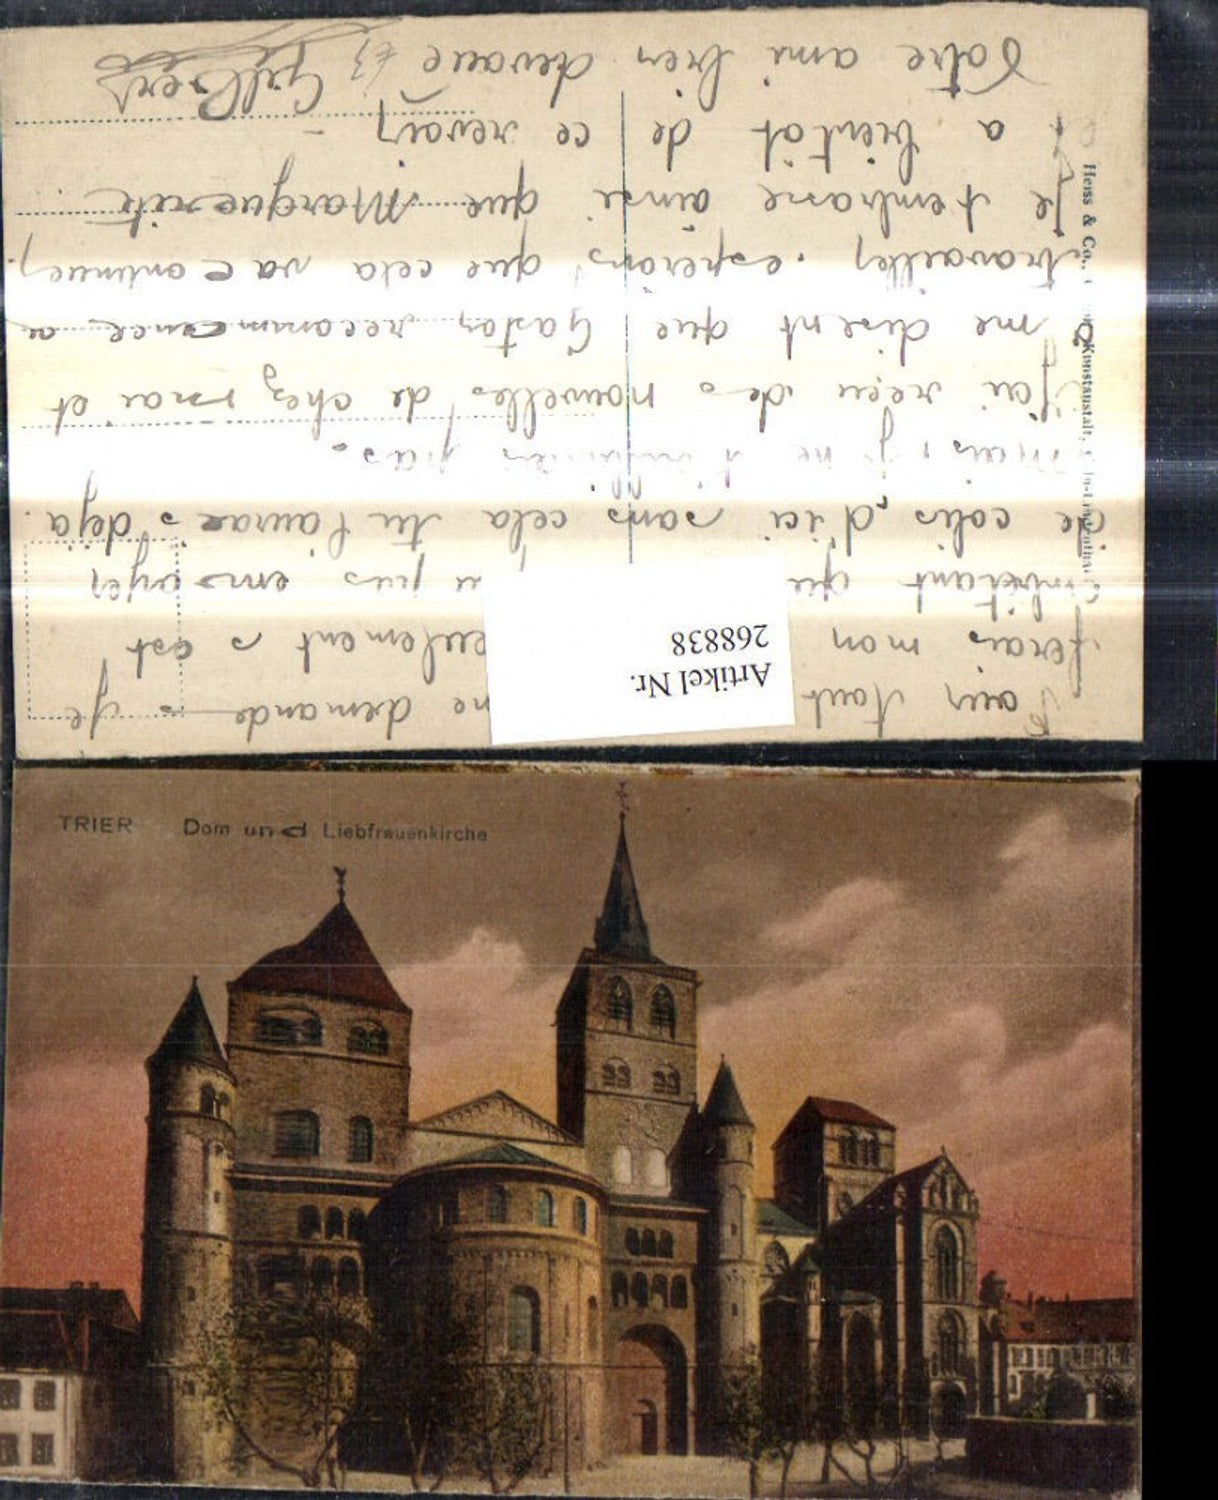 Pour tout ne demande Je
ferais mon seulement s est
embêtant qu pas ensoyer
de colis d'ici sans cela tu l'aurais déja.
mais, je ne t'oublierer pas.
J'ai reçu des nouvelles de chez moi et
me disent que Gaston recommence a
travailler. espérons que cela va continuer.
Je t'embrasse ainsi que Marguerite
a bientôt de ce revoir –
Votre ami bien devoue Gilbert
Heiss & Co., Kunstanstalt,
Artikel Nr.
268838
TRIER Dom und Liebfrauenkirche